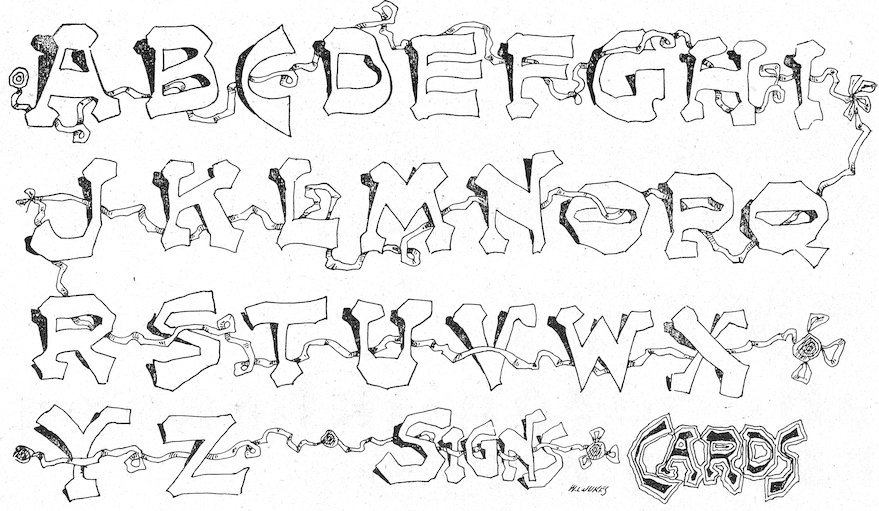 ABCDEFGHI
JKLMNOPQ
RSTUVWX
YZ SIGNS CARDS